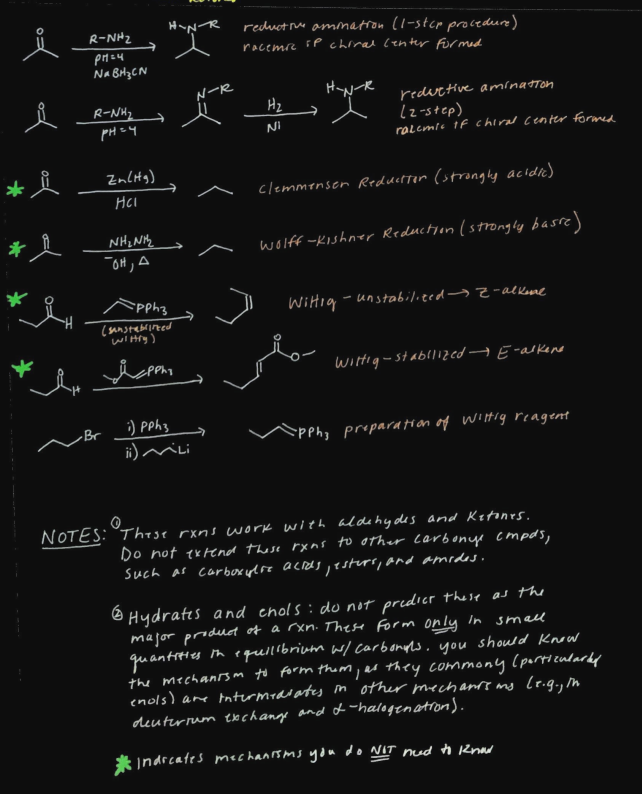 H N-R
reductive amination (1-step procedure)
O R-NH₂
racemic if chiral center formed
pH=4
NaBH₃CN
N-R H N-R reductive amination
O R-NH₂ H₂ (2-step)
pH=4 Ni racemic if chiral center formed
* O Zn(Hg) Clemmensen Reduction (strongly acidic)
HCl
* O NH₂NH₂ Wolff-Kishner Reduction (strongly basic)
⁻OH, Δ
* O H PPh₃ Wittig-unstabilized → Z-alkene
(unstabilized
wittig)
* O H O O PPh₃ O O Wittig-stabilized → E-alkene
Br i) PPh₃ PPh₃ preparation of Wittig reagent
ii) Li
NOTES: ① These rxns work with aldehydes and ketones.
Do not extend these rxns to other carbonyl cmpds,
such as carboxylic acids, esters, and amides.
② Hydrates and enols: do not predict these as the
major product of a rxn. These form only in small
quantities in equilibrium w/ carbonyls. you should know
the mechanism to form them, as they commonly (particularly
enols) are intermediates in other mechanisms (e.g., in
deuterium exchange and α-halogenation).
* Indicates mechanisms you do NOT need to know